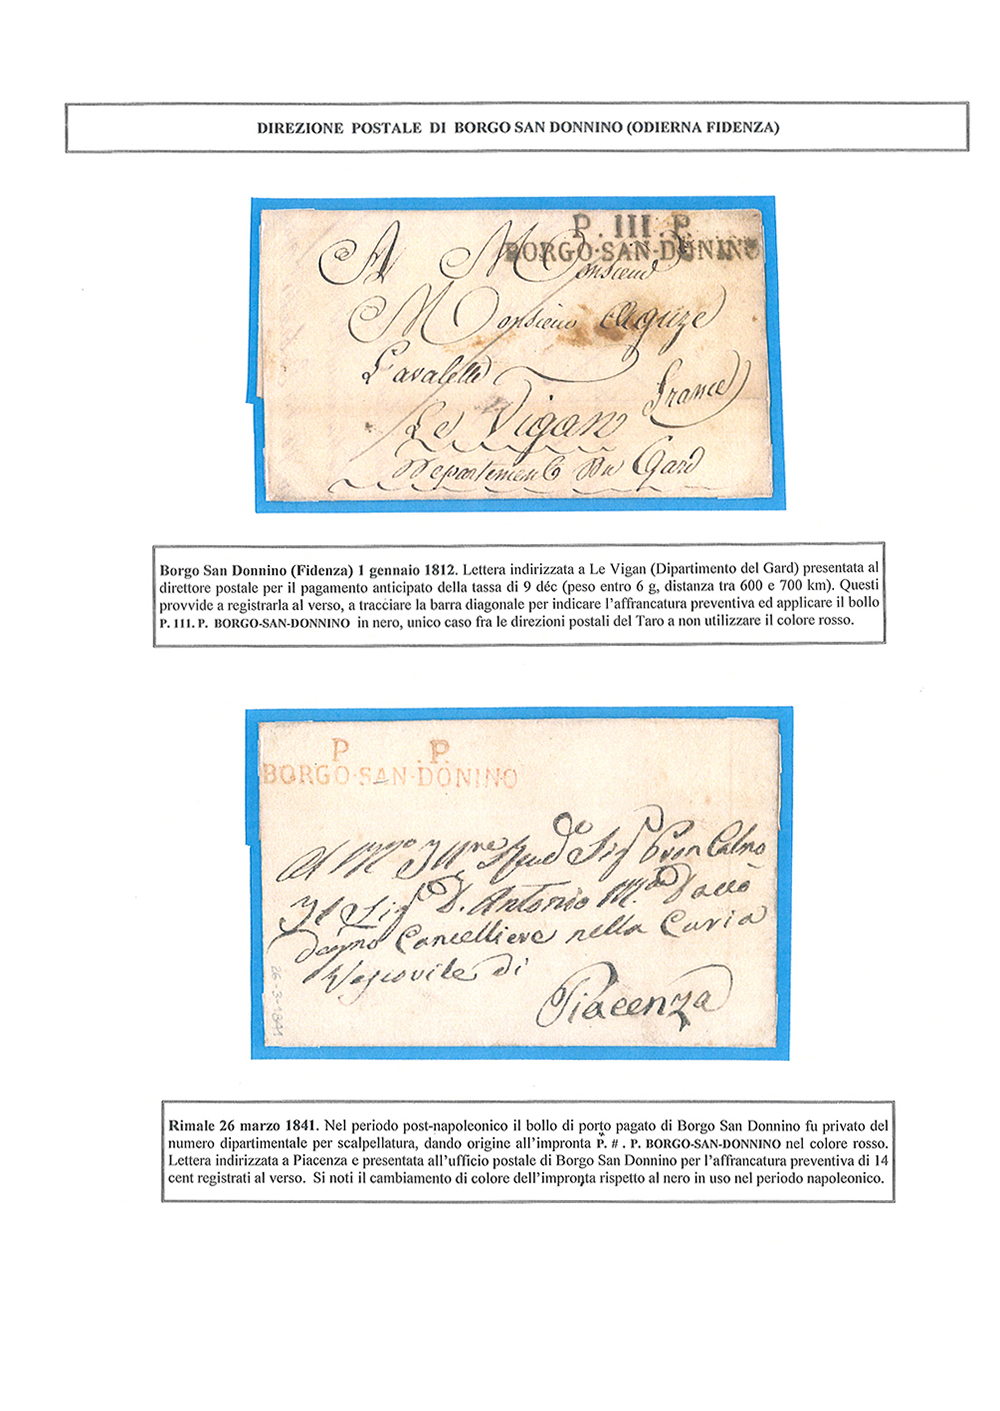 DIREZIONE POSTALE DI BORGO SAN DONNINO (ODIERNA FIDENZA)
P. III. P.
BORGO-SAN-DONINO
A Monsieur
Monsieur Aguze
Lavalette
France
Le Vigan
Departement Du Gard
Borgo San Donnino (Fidenza) 1 gennaio 1812. Lettera indirizzata a Le Vigan (Dipartimento del Gard) presentata al
direttore postale per il pagamento anticipato della tassa di 9 déc (peso entro 6 g, distanza tra 600 e 700 km). Questi
provvide a registrarla al verso, a tracciare la barra diagonale per indicare l'affrancatura preventiva ed applicare il bollo
P. 111. P. BORGO-SAN-DONNINO in nero, unico caso fra le direzioni postali del Taro a non utilizzare il colore rosso.
P .P.
BORGO-SAN-DONINO
Al M.to Ill.re Rev.do Sig
Il Sig D. Antonio M.a Daccò
Degno Cancelliere nella Curia
Vescovile di
Piacenza
26-3-1841
Rimale 26 marzo 1841. Nel periodo post-napoleonico il bollo di porto pagato di Borgo San Donnino fu privato del
numero dipartimentale per scalpellatura, dando origine all'impronta P. # . P. BORGO-SAN-DONNINO nel colore rosso.
Lettera indirizzata a Piacenza e presentata all'ufficio postale di Borgo San Donnino per l'affrancatura preventiva di 14
cent registrati al verso. Si noti il cambiamento di colore dell'impronta rispetto al nero in uso nel periodo napoleonico.